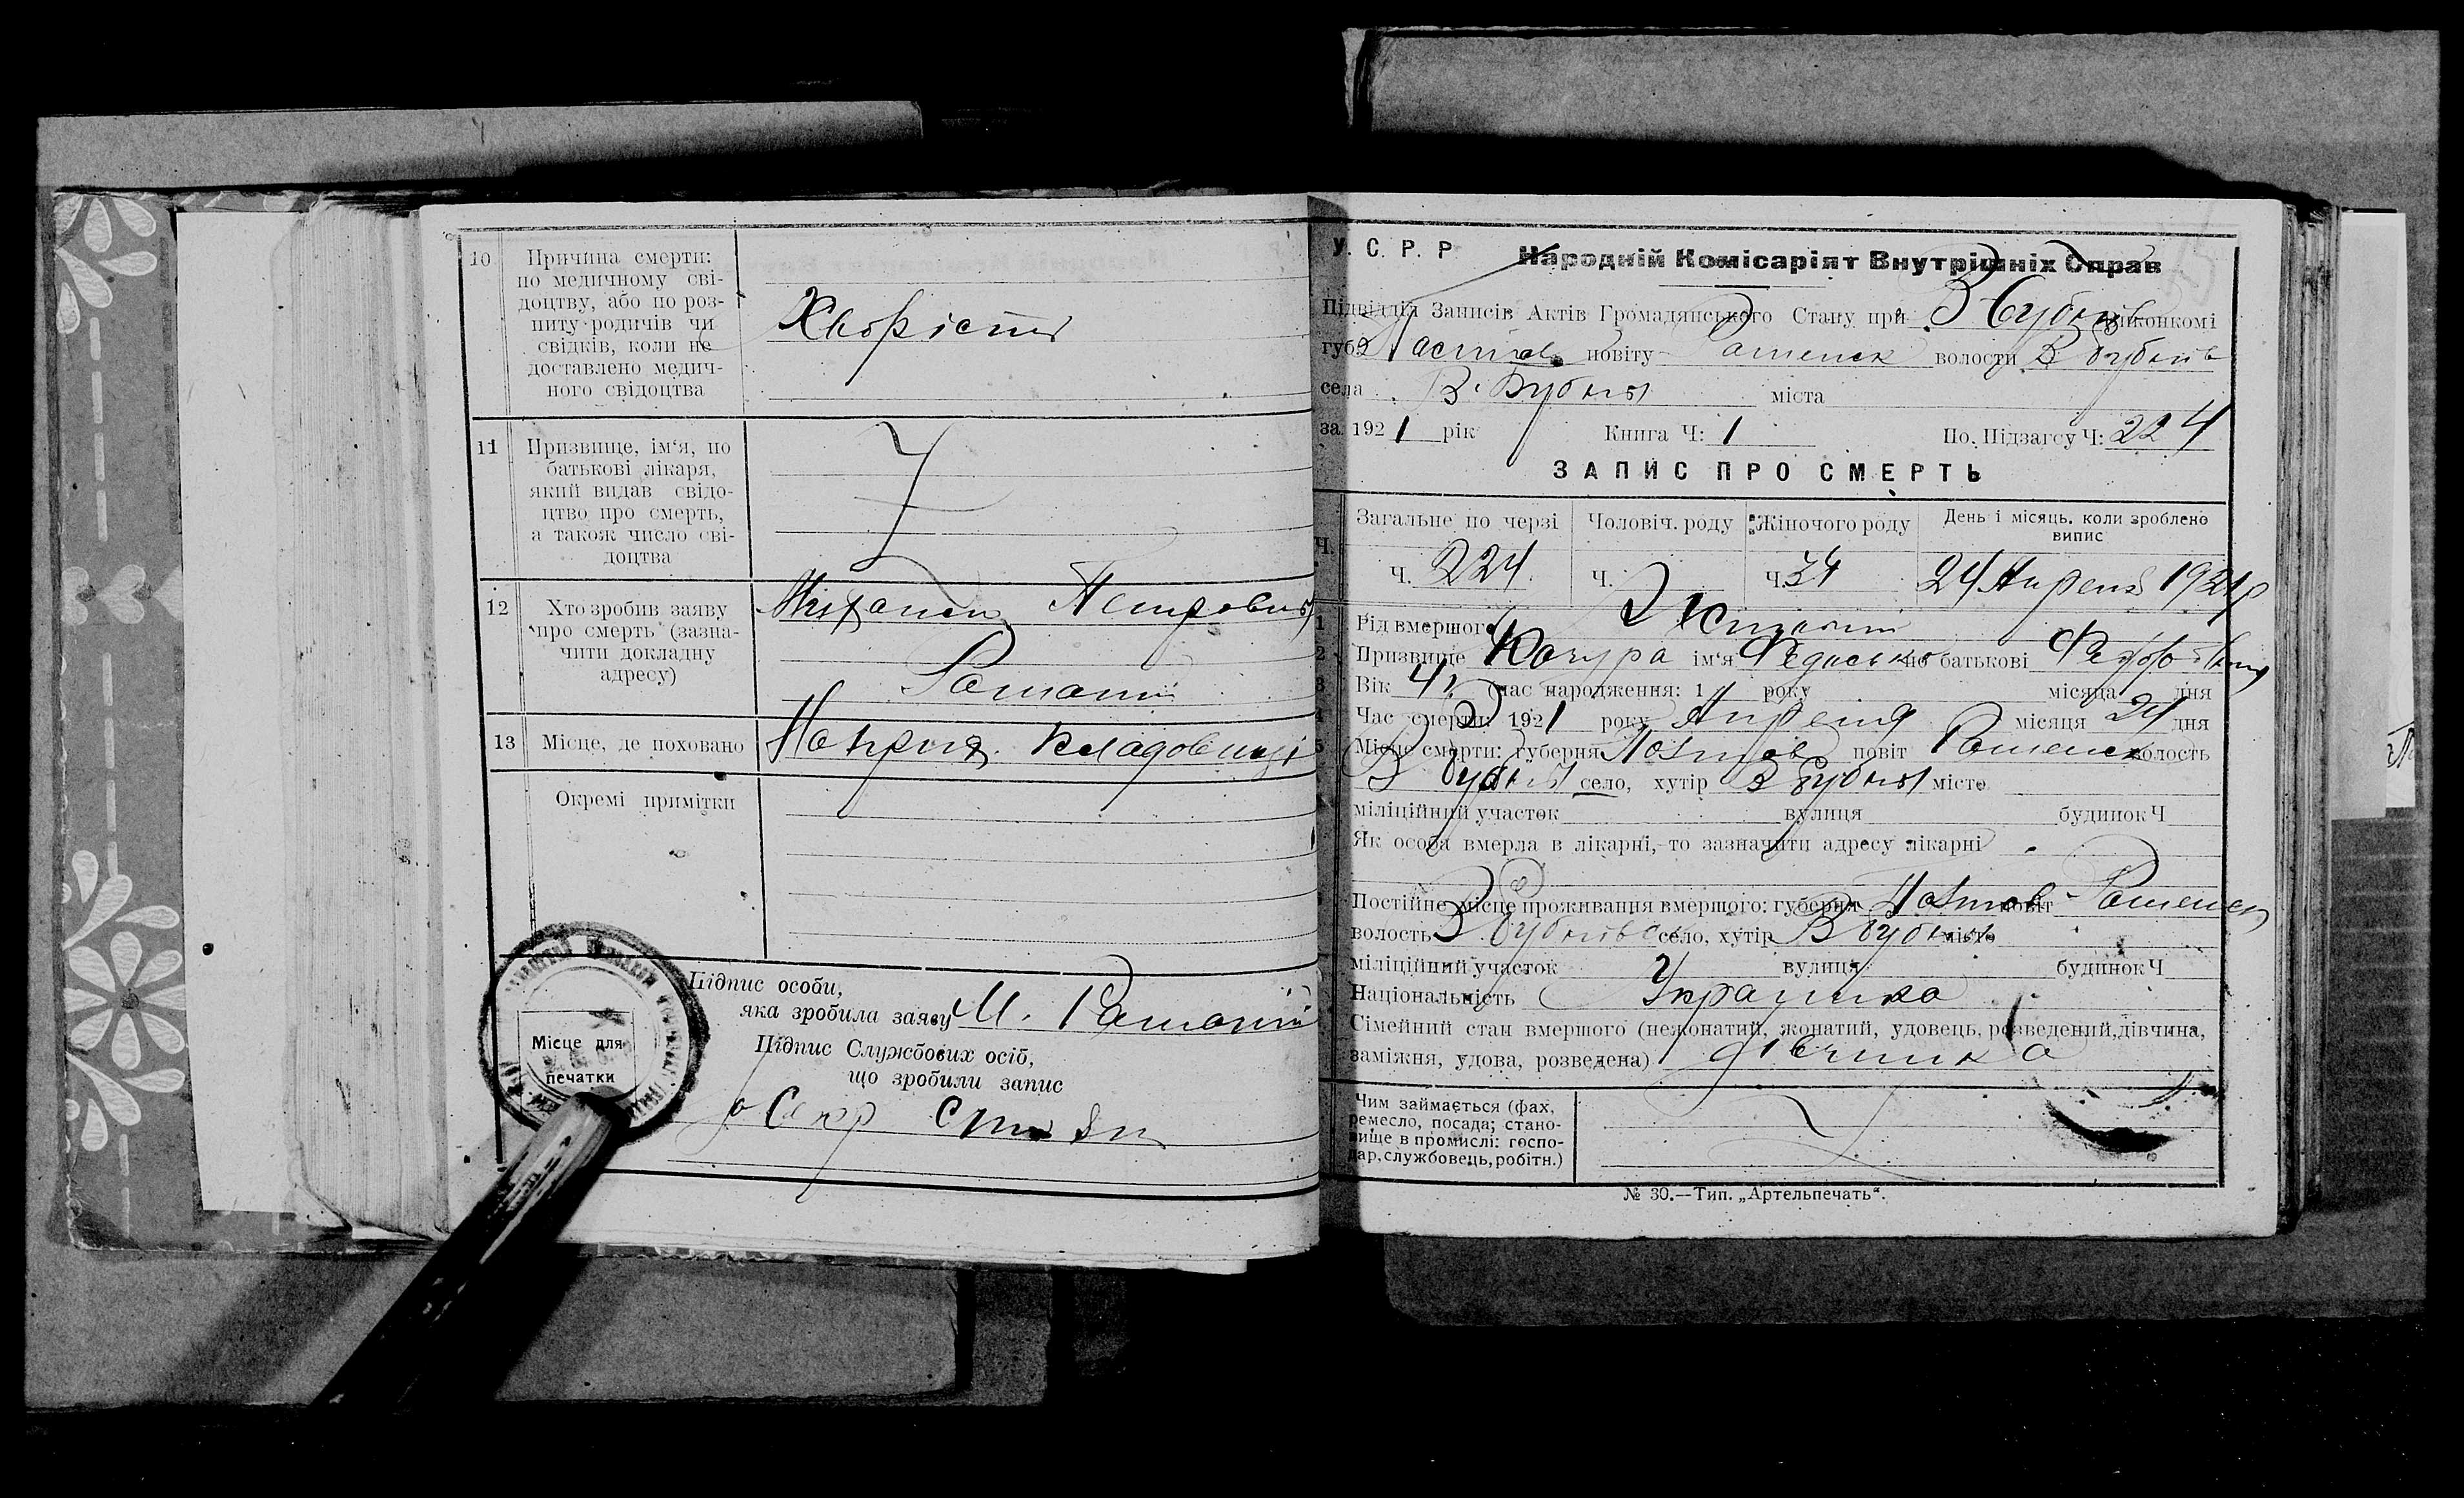 10 Причина смерти:
по медичному сві-
доцтву, або по роз-
питу родичів чи
свідків, коли не
доставлено медич-
ного свідоцтва
Хворість
11 Призвище, ім'я, по
батькові лікаря,
який видав свідо-
цтво про смерть,
а також число сві-
доцтва
12 Хто зробив заяву
про смерть (зазна-
чити докладну
адресу)
Петрович
13 Місце, де поховано
кладовищі
Окремі примітки
Підпис особи,
яка зробила заяву М.
Місце для
печатки
Підпис Службових осіб,
що зробили запис
Секр
У. С. Р. Р
Народній Комісаріят Внутрішніх Справ
Підвідділ Записів Актів Громадянського Стану при В Бубнів виконкомі
губ. повіту Роменск волости В Бубнів
села В. Бубны міста
за 1921 рік Книга Ч: 1 По. Підзагсу Ч: 224
ЗАПИС ПРО СМЕРТЬ
Загальне по черзі Чоловіч. роду Жіночого роду День і місяць. коли зроблено
випис
Ч. Ч. 224 Ч. Ч. 24 Апреля 1921 р
1 Рід вмершого
2 Призвище Кочура ім'я по батькові
3 Вік 4 (час народження: 1 року місяца дня
4 Час смерти: 1921 року Апреля місяця 24 дня
5 Місце смерти: губерня Полтов повіт Роменск волость
В Бубны село, хутір В Бубны місто
міліційний участок вулиця будинок Ч
Як особа вмерла в лікарні, то зазначити адресу лікарні
Постійне місце проживання вмершого: губерня Полтов повіт Роменск
волость В Бубнівс село, хутір В Бубны місто
міліційний участок вулиця будинок Ч
Національність Українка
Сімейний стан вмершого (нежонатий, жонатий, удовець, розведений, дівчина,
заміжня, удова, розведена) дівчинка
Чим займається (фах,
ремесло, посада; стано-
вище в промислі: госпо-
дар, службовець, робітн.)
№ 30.—Тип. „Артельпечать“.